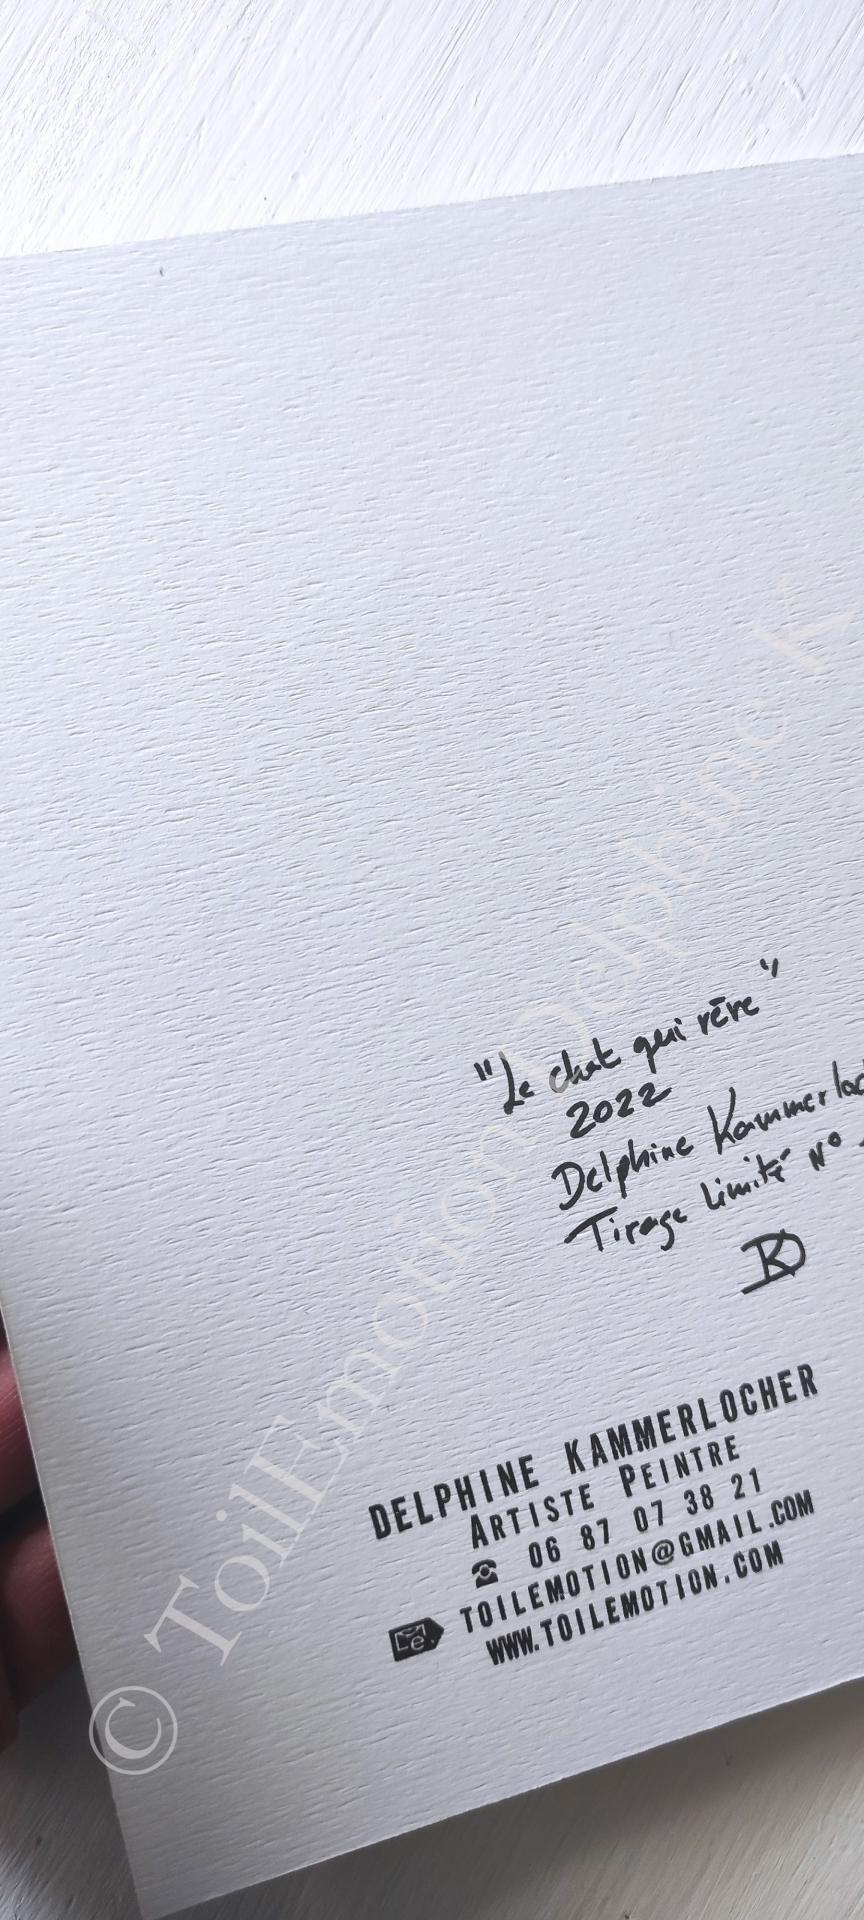 "Le chat qui rêve"
2022
Delphine Kammerloc
Tirage Limité N°
DK
DELPHINE KAMMERLOCHER
ARTISTE PEINTRE
06 87 07 38 21
TOILEMOTION@GMAIL.COM
WWW.TOILEMOTION.COM
© ToilEmotion Delphine K